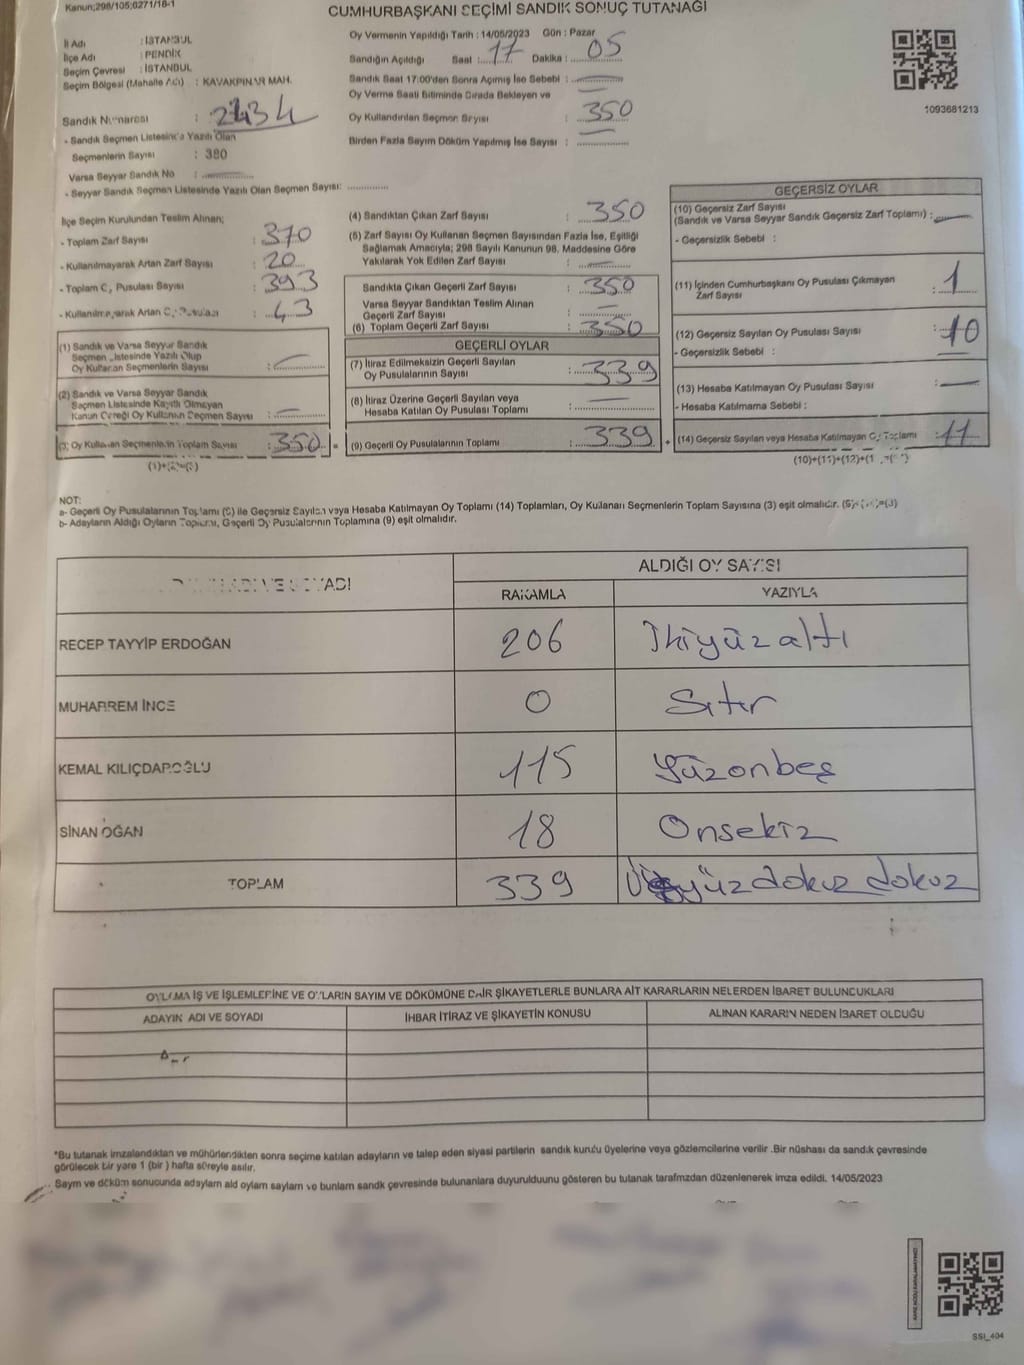 Kanun;298/105;0271/18-1
CUMHURBAŞKANI SEÇİMİ SANDIK SONUÇ TUTANAĞI
İl Adı : İSTANBUL
İlçe Adı : PENDİK
Seçim Çevresi : İSTANBUL
Seçim Bölgesi (Mahalle Adı) : KAVAKPINAR MAH.
Sandık Numarası : 2434
- Sandık Seçmen Listesinde Yazılı Olan
Seçmenlerin Sayısı : 380
Varsa Seyyar Sandık No :
- Seyyar Sandık Seçmen Listesinde Yazılı Olan Seçmen Sayısı:
Oy Vermenin Yapıldığı Tarih : 14/05/2023 Gün : Pazar
Sandığın Açıldığı Saat : 17 Dakika : 05
Sandık Saat 17:00'den Sonra Açımış İse Sebebi :
Oy Verme Saati Bitiminde Sırada Bekleyen ve
Oy Kullandırılan Seçmen Sayısı : 350
Birden Fazla Sayım Döküm Yapılmış İse Sayısı :
1093681213
İlçe Seçim Kurulundan Teslim Alınan;
- Toplam Zarf Sayısı : 370
- Kullanılmayarak Artan Zarf Sayısı : 20
- Toplam C, Pusulası Sayısı : 393
- Kullanılmayarak Artan 43
(1) Sandık ve Varsa Seyyar Sandık
Seçmen Listesinde Yazılı Olup
Oy Kullanan Seçmenlerin Sayısı :
(2) Sandık ve Varsa Seyyar Sandık
Seçmen Listesinde Kayıtlı Olmayan
Kanun Gereği Oy Kullanan Seçmen Sayısı :
(3) Oy Kullanan Seçmenlerin Toplam Sayısı : 350 =
(4) Sandıktan Çıkan Zarf Sayısı : 350
(5) Zarf Sayısı Oy Kullanan Seçmen Sayısından Fazla İse, Eşitliği
Sağlamak Amacıyla; 298 Sayılı Kanunun 98. Maddesine Göre
Yakılarak Yok Edilen Zarf Sayısı :
Sandıkta Çıkan Geçerli Zarf Sayısı : 350
Varsa Seyyar Sandıktan Teslim Alınan
Geçerli Zarf Sayısı :
(6) Toplam Geçerli Zarf Sayısı : 350
GEÇERLİ OYLAR
(7) İtiraz Edilmeksizin Geçerli Sayılan
Oy Pusulalarının Sayısı : 339
(8) İtiraz Üzerine Geçerli Sayılan veya
Hesaba Katılan Oy Pusulası Toplamı :
(9) Geçerli Oy Pusulalarının Toplamı : 339 +
GEÇERSİZ OYLAR
(10) Geçersiz Zarf Sayısı
(Sandık ve Varsa Seyyar Sandık Geçersiz Zarf Toplamı) :
- Geçersizlik Sebebi :
(11) İçinden Cumhurbaşkanı Oy Pusulası Çıkmayan
Zarf Sayısı : 1
(12) Geçersiz Sayılan Oy Pusulası Sayısı : 10
- Geçersizlik Sebebi :
(13) Hesaba Katılmayan Oy Pusulası Sayısı :
- Hesaba Katılmama Sebebi :
(14) Geçersiz Sayılan veya Hesaba Katılmayan Oy Toplamı : 11
NOT:
a- Geçerli Oy Pusulalarının Toplamı (9) ile Geçersiz Sayılan veya Hesaba Katılmayan Oy Toplamı (14) Toplamları, Oy Kullanan Seçmenlerin Toplam Sayısına (3) eşit olmalıdır.
b- Adayların Aldığı Oyların Toplamı, Geçerli Oy Pusulalarının Toplamına (9) eşit olmalıdır.
ALDIĞI OY SAYISI
RAKAMLA YAZIYLA
RECEP TAYYİP ERDOĞAN 206 İkiyüzaltı
MUHARREM İNCE 0 Sıfır
KEMAL KILIÇDAROĞLU 115 Yüzonbeş
SİNAN OĞAN 18 Onsekiz
TOPLAM 339 Üçyüzdokuz dokuz
OYLAMA İŞ VE İŞLEMLERİNE VE OYLARIN SAYIM VE DÖKÜMÜNE DAİR ŞİKAYETLERLE BUNLARA AİT KARARLARIN NELERDEN İBARET BULUNCUKLARI
ADAYIN ADI VE SOYADI İHBAR İTİRAZ VE ŞİKAYETİN KONUSU ALINAN KARARIN NEDEN İBARET OLDUĞU
*Bu tutanak imzalandıktan ve mühürlendikten sonra seçime katılan adayların ve talep eden siyasi partilerin sandık kurulu üyelerine veya gözlemcilerine verilir .Bir nüshası da sandık çevresinde
görülecek bir yere 1 (bir) hafta süreyle asılır.
Sayım ve döküm sonucunda adayların ald oyların sayıları ve bunların sandk çevresinde bulunanlara duyurulduunu gösteren bu tutanak tarafmzdan düzenlenerek imza edildi. 14/05/2023
SSI_404